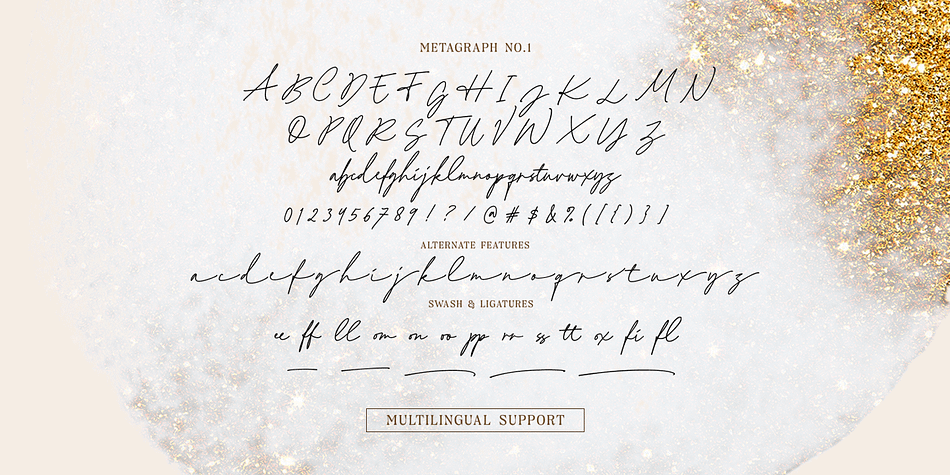 METAGRAPH NO.1
A B C D E F G H I J K L M N
O P Q R S T U V W X Y Z
abcdefghijklmnopqrstuvwxyz
0 1 2 3 4 5 6 7 8 9 ! ? / @ # $ & % ( [ { ) } ]
ALTERNATE FEATURES
a c d e f g h i j k l m n o q r s t u x y z
SWASH & LIGATURES
ee ff ll om on oo pp rr ss tt ox fi fl
MULTILINGUAL SUPPORT